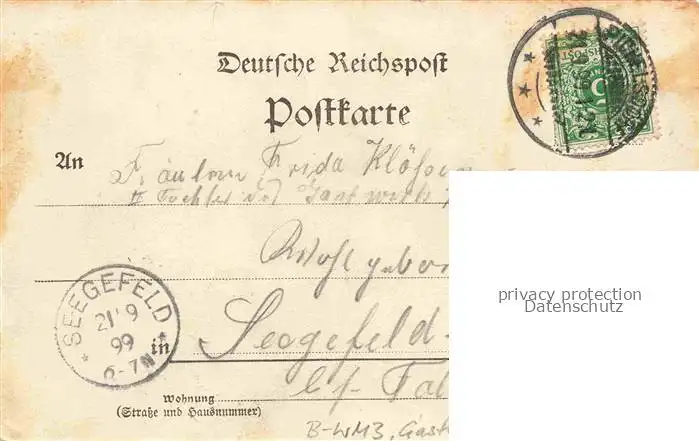 Deutsche Reichspost
Postkarte
An
Fräulein Frida
Tochter des Gastwirth
Wohlgebor
SEEGEFELD
21 9
99
6-7N
in
Seegefeld
Wohnung
(Straße und Hausnummer)
B-WM3, Gast
privacy protection
Datenschutz